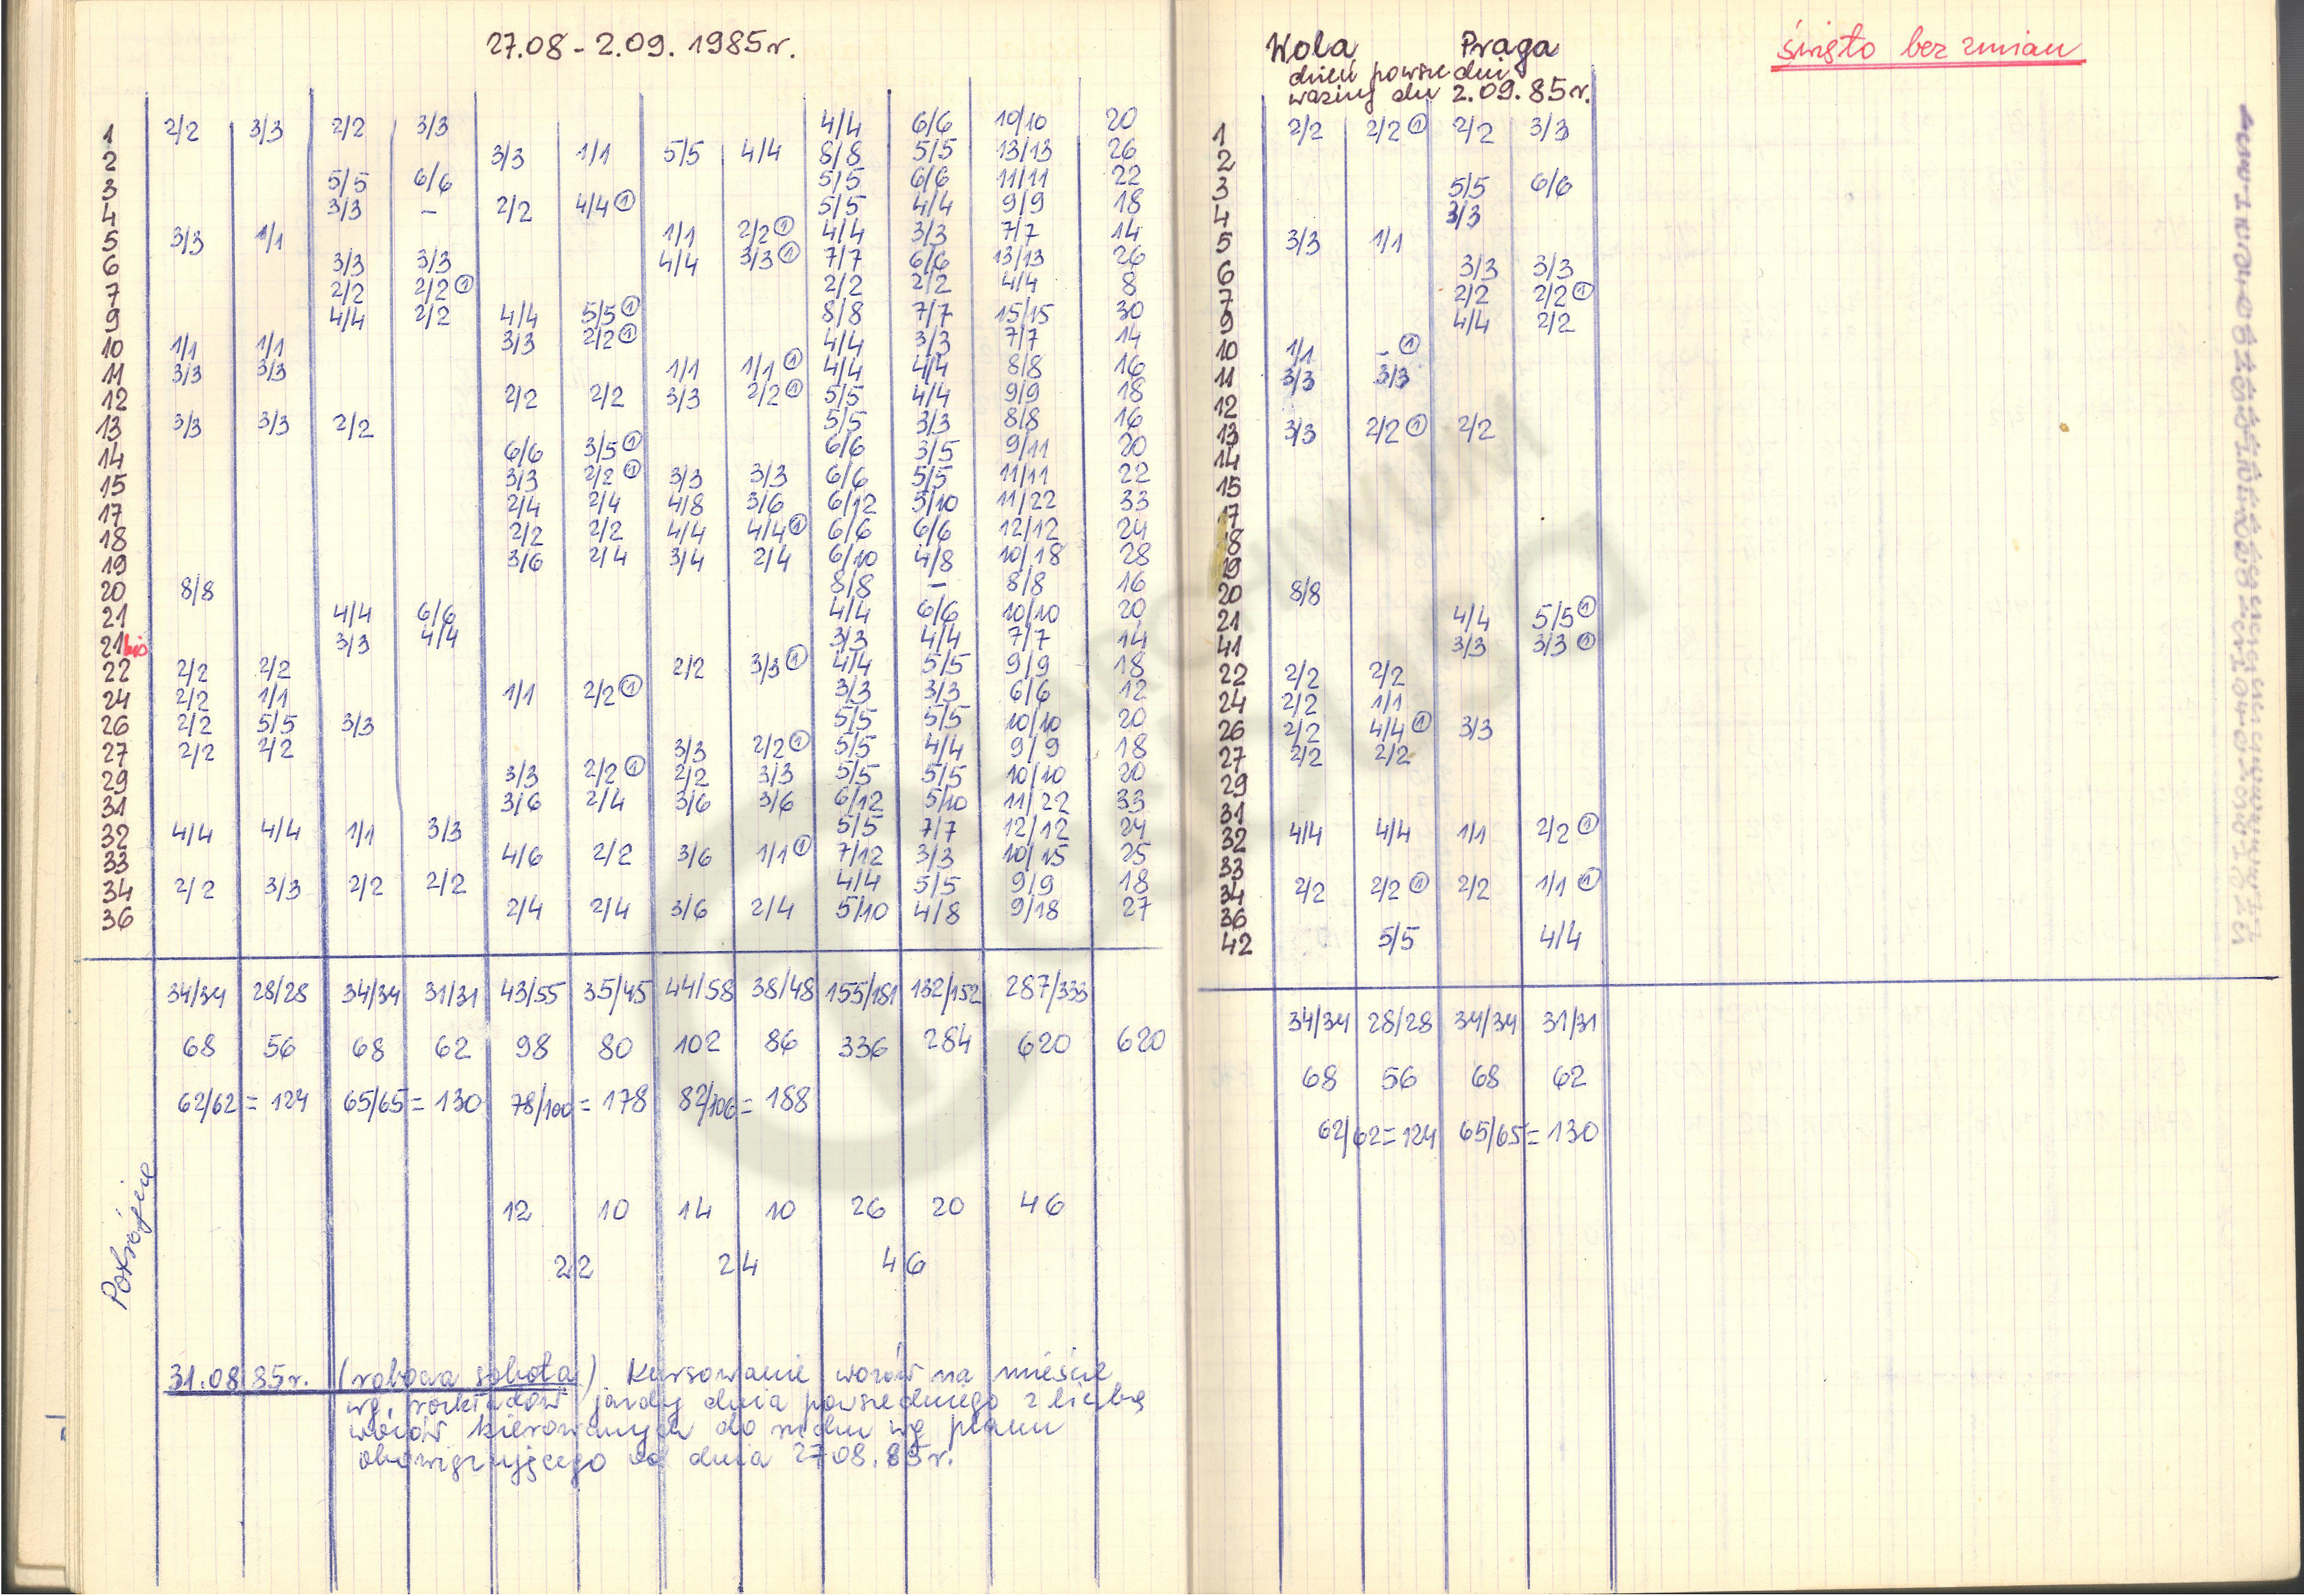 27.08 - 2.09. 1985 r.
1 2/2 3/3 2/2 3/3 4/4 6/6 10/10 20
2 3/3 1/1 5/5 4/4 8/8 5/5 13/13 26
3 5/5 6/6 5/5 6/6 11/11 22
4 3/3 – 2/2 4/4 ① 5/5 4/4 9/9 18
5 3/3 1/1 1/1 2/2 ① 4/4 3/3 7/7 14
6 3/3 3/3 4/4 3/3 ① 7/7 6/6 13/13 26
7 2/2 2/2 ① 2/2 2/2 4/4 8
9 4/4 2/2 4/4 5/5 ① 8/8 7/7 15/15 30
10 1/1 1/1 3/3 2/2 ① 4/4 3/3 7/7 14
11 3/3 3/3 1/1 1/1 ① 4/4 4/4 8/8 16
12 2/2 2/2 3/3 2/2 ① 5/5 4/4 9/9 18
13 3/3 3/3 2/2 5/5 3/3 8/8 16
14 6/6 3/5 ① 6/6 3/5 9/11 20
15 3/3 2/2 ① 3/3 3/3 6/6 5/5 11/11 22
17 2/4 2/4 4/8 3/6 6/12 5/10 11/22 33
18 2/2 2/2 4/4 4/4 ① 6/6 6/6 12/12 24
19 3/6 2/4 3/4 2/4 6/10 4/8 10/18 28
20 8/8 8/8 – 8/8 16
21 4/4 6/6 4/4 6/6 10/10 20
21bis 3/3 4/4 3/3 4/4 7/7 14
22 2/2 2/2 2/2 3/3 ① 4/4 5/5 9/9 18
24 2/2 1/1 1/1 2/2 ① 3/3 3/3 6/6 12
26 2/2 5/5 3/3 5/5 5/5 10/10 20
27 2/2 2/2 3/3 2/2 ① 5/5 4/4 9/9 18
29 3/3 2/2 ① 2/2 3/3 5/5 5/5 10/10 20
31 3/6 2/4 3/6 3/6 6/12 5/10 11/22 33
32 4/4 4/4 1/1 3/3 5/5 7/7 12/12 24
33 4/6 2/2 3/6 1/1 ① 7/12 3/3 10/15 25
34 2/2 3/3 2/2 2/2 4/4 5/5 9/9 18
36 2/4 2/4 3/6 2/4 5/10 4/8 9/18 27
34/34 28/28 34/34 31/31 43/55 35/45 44/58 38/48 155/181 132/152 287/333
68 56 68 62 98 80 102 86 336 284 620 620
62/62 = 124 65/65 = 130 78/100 = 178 82/106 = 188
Potrójne
12 10 14 10 26 20 46
22 24 46
31.08.85r. (robocza sobota) Kursowanie wozów na mieście
wg. rozkładów jazdy dnia powszedniego z liczbą
wozów kierowanych do ruchu wg planu
obowiązującego od dnia 27.08.85r.
Wola Praga
dzień powszedni
ważny dn 2.09.85r.
1 2/2 2/2 ① 2/2 3/3
2
3 5/5 6/6
4 3/3
5 3/3 1/1
6 3/3 3/3
7 2/2 2/2 ①
9 4/4 2/2
10 1/1 – ①
11 3/3 3/3
12
13 3/3 2/2 ① 2/2
14
15
17
18
19
20 8/8
21 4/4 5/5 ①
41 3/3 3/3 ①
22 2/2 2/2
24 2/2 1/1
26 2/2 4/4 ① 3/3
27 2/2 2/2
29
31
32 4/4 4/4 1/1 2/2 ①
33
34 2/2 2/2 ① 2/2 1/1 ①
36
42 5/5 4/4
34/34 28/28 34/34 31/31
68 56 68 62
62/62 = 124 65/65 = 130
święto bez zmian